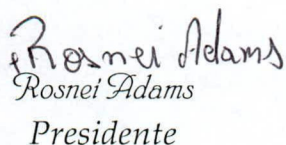 Rosnei Adams
Rosnei Adams
Presidente